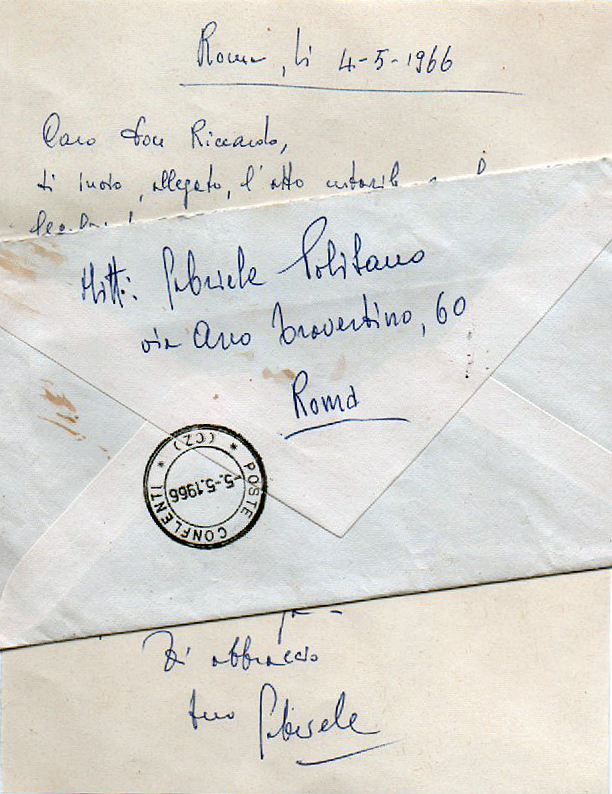 Roma, lì 4-5-1966
Caro Don Riccardo,
ti invio, allegato, l'atto
Mitt: Gabriele Politano
via Arco Travertino, 60
Roma
POSTE CONFLENTI
* (CZ) *
-5.-5.1966
Ti abbraccio
tuo Gabriele